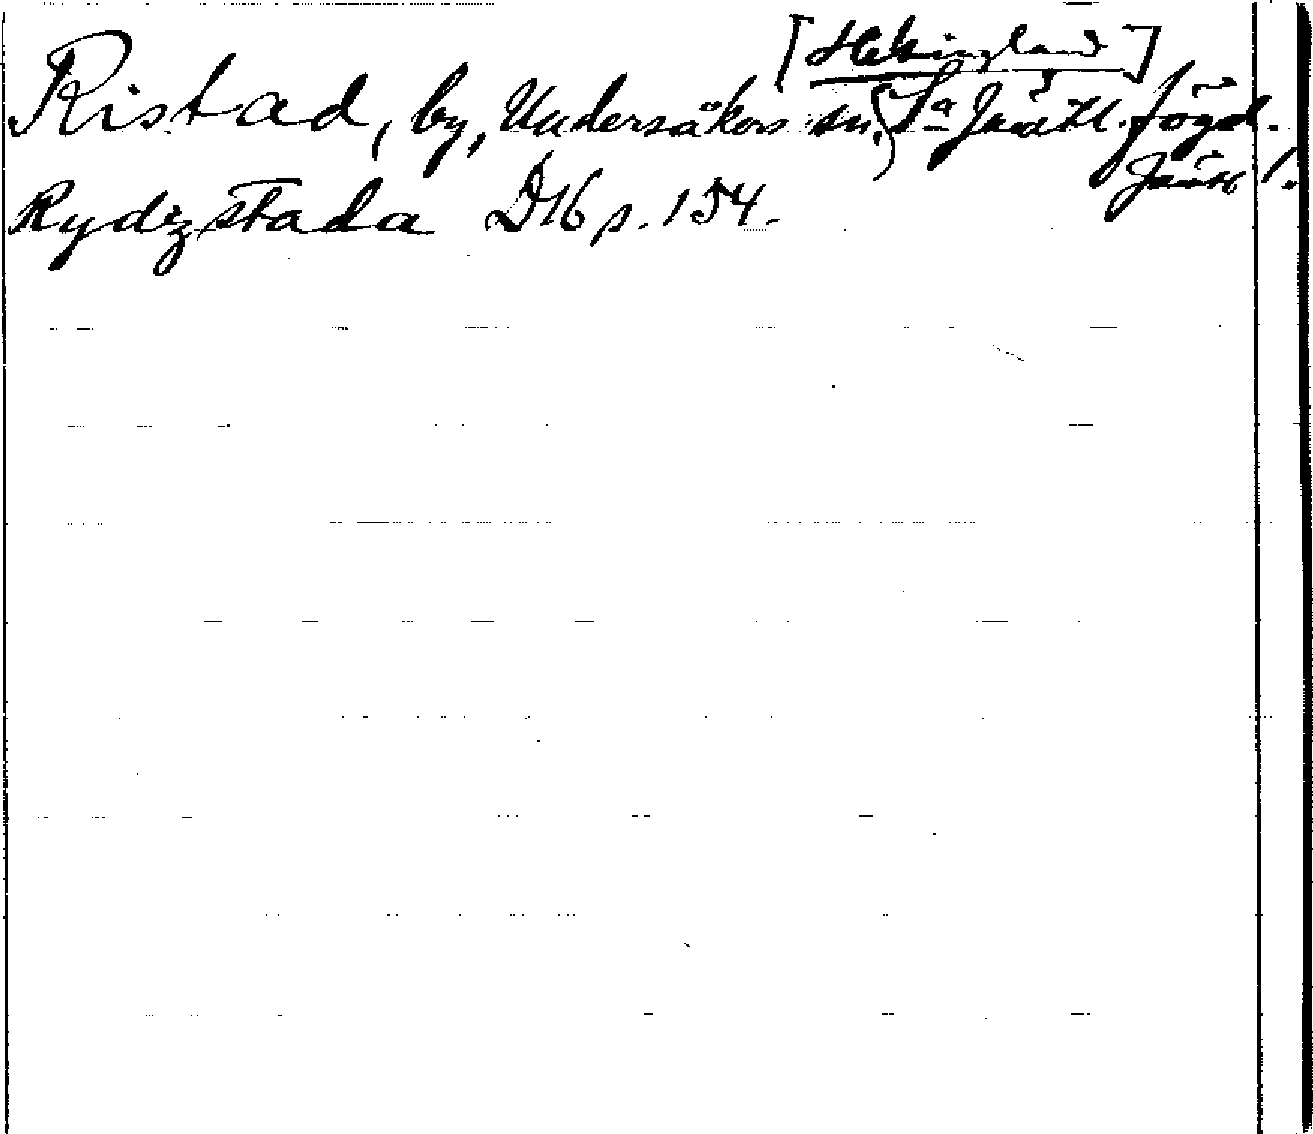 [Helsingland]
Ristad, by, Undersåkers sn, Sa Jämtl. fögd.
Jämtl.
Rydzstada D16 p. 154.